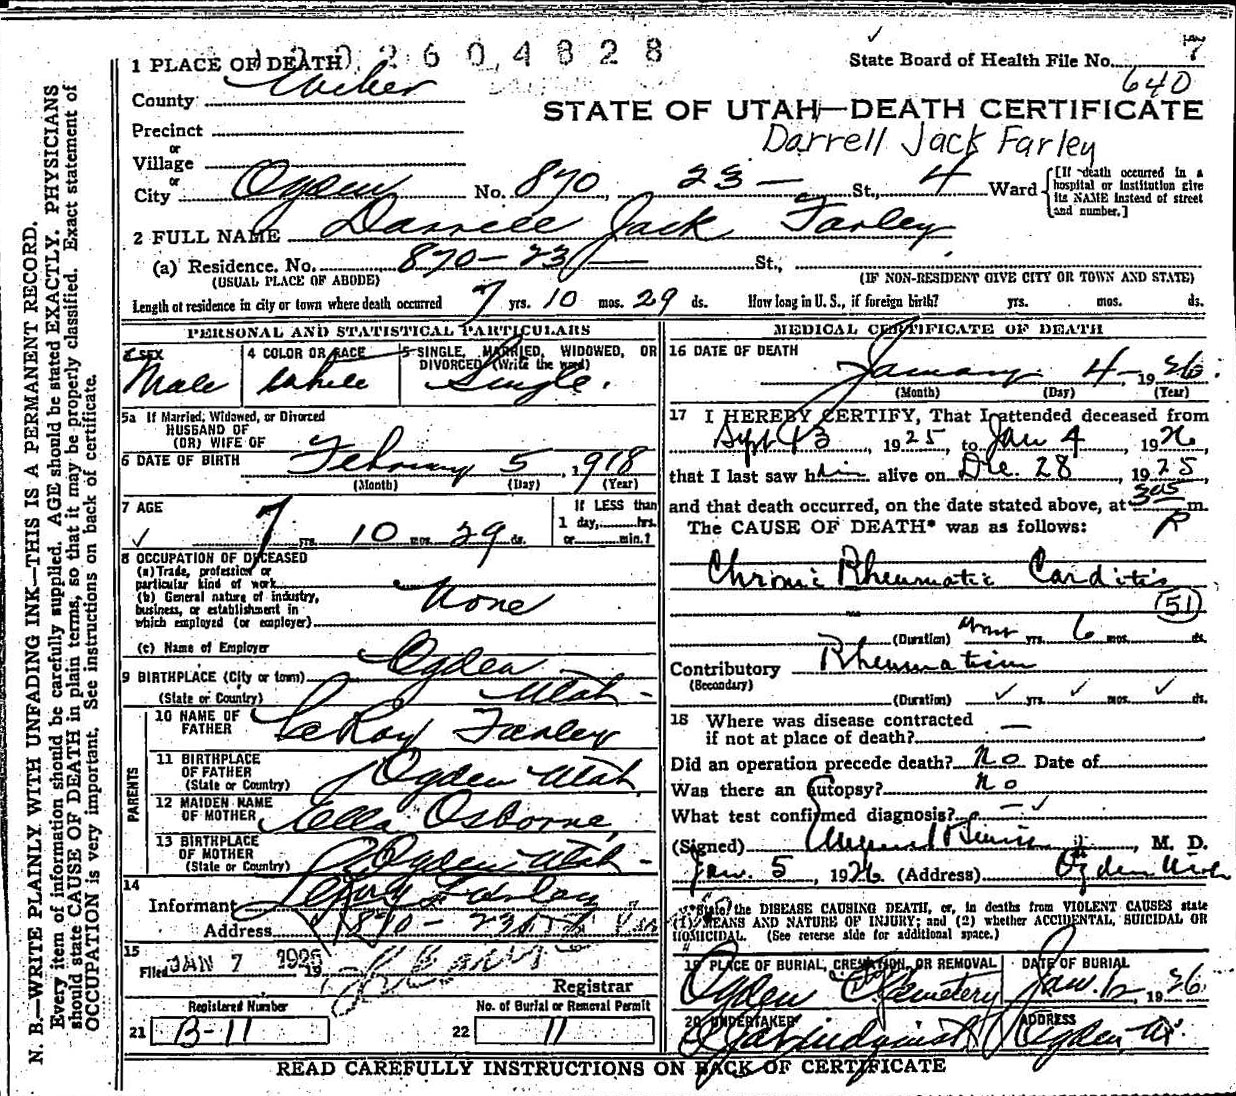 2604828
State Board of Health File No. 7
640
1 PLACE OF DEATH
County Weber
STATE OF UTAH—DEATH CERTIFICATE
Precinct
or
Darrell Jack Farley
Village
or
City Ogden No. 870 23 — St., 4 Ward [If death occurred in a hospital or institution give its NAME instead of street and number.]
2 FULL NAME Darrell Jack Farley
(a) Residence. No. 870 — 23 — St.,
(USUAL PLACE OF ABODE) (IF NON-RESIDENT GIVE CITY OR TOWN AND STATE)
Length of residence in city or town where death occurred 7 yrs. 10 mos. 29 ds. How long in U. S., if foreign birth? yrs. mos. ds.
PERSONAL AND STATISTICAL PARTICULARS
3 SEX 4 COLOR OR RACE 5 SINGLE, MARRIED, WIDOWED, OR DIVORCED (Write the word)
Male White Single.
5a If Married, Widowed, or Divorced
HUSBAND OF
(OR) WIFE OF
6 DATE OF BIRTH February 5, 1918
(Month) (Day) (Year)
7 AGE
If LESS than
1 day, hrs.
7 yrs. 10 mos. 29 ds. or min.?
8 OCCUPATION OF DECEASED
(a) Trade, profession or
particular kind of work
(b) General nature of industry,
business, or establishment in
which employed (or employer) None
(c) Name of Employer
9 BIRTHPLACE (City or town) Ogden
(State or Country) Utah —
PARENTS
10 NAME OF
FATHER LeRoy Farley
11 BIRTHPLACE
OF FATHER
(State or Country) Ogden Utah
12 MAIDEN NAME
OF MOTHER Ella Osborne
13 BIRTHPLACE
OF MOTHER
(State or Country) Ogden Utah —
14
Informant LeRoy Farley
Address 870 — 23
15
Filed JAN 7 1926 19
Registrar
Registered Number No. of Burial or Removal Permit
21 B-11 22 11
MEDICAL CERTIFICATE OF DEATH
16 DATE OF DEATH
January 4 — 1926.
(Month) (Day) (Year)
17 I HEREBY CERTIFY, That I attended deceased from
Sept 13, 1925, to Jan 4, 1926,
that I last saw him alive on Dec. 28, 1925,
and that death occurred, on the date stated above, at 305 m.
P
The CAUSE OF DEATH* was as follows:
Chronic Rheumatic Carditis
51
(Duration) yrs. 6 mos. ds.
Contributory Rheumatism
(Secondary)
(Duration) yrs. mos. ds.
18 Where was disease contracted
if not at place of death? —
Did an operation precede death? No Date of
Was there an Autopsy? No
What test confirmed diagnosis? —
(Signed) M. D.
Jan. 5, 1926 (Address) Ogden Utah
*State the DISEASE CAUSING DEATH, or, in deaths from VIOLENT CAUSES state
(1) MEANS AND NATURE OF INJURY; and (2) whether ACCIDENTAL, SUICIDAL OR
HOMICIDAL. (See reverse side for additional space.)
19 PLACE OF BURIAL, CREMATION, OR REMOVAL DATE OF BURIAL
Ogden City Cemetery Jan. 1926
20 UNDERTAKER ADDRESS
Lindquist Ogden, Ut.
READ CAREFULLY INSTRUCTIONS ON BACK OF CERTIFICATE
N. B.—WRITE PLAINLY WITH UNFADING INK—THIS IS A PERMANENT RECORD.
Every item of information should be carefully supplied. AGE should be stated EXACTLY. PHYSICIANS
should state CAUSE OF DEATH in plain terms, so that it may be properly classified. Exact statement of
OCCUPATION is very important. See instructions on back of certificate.